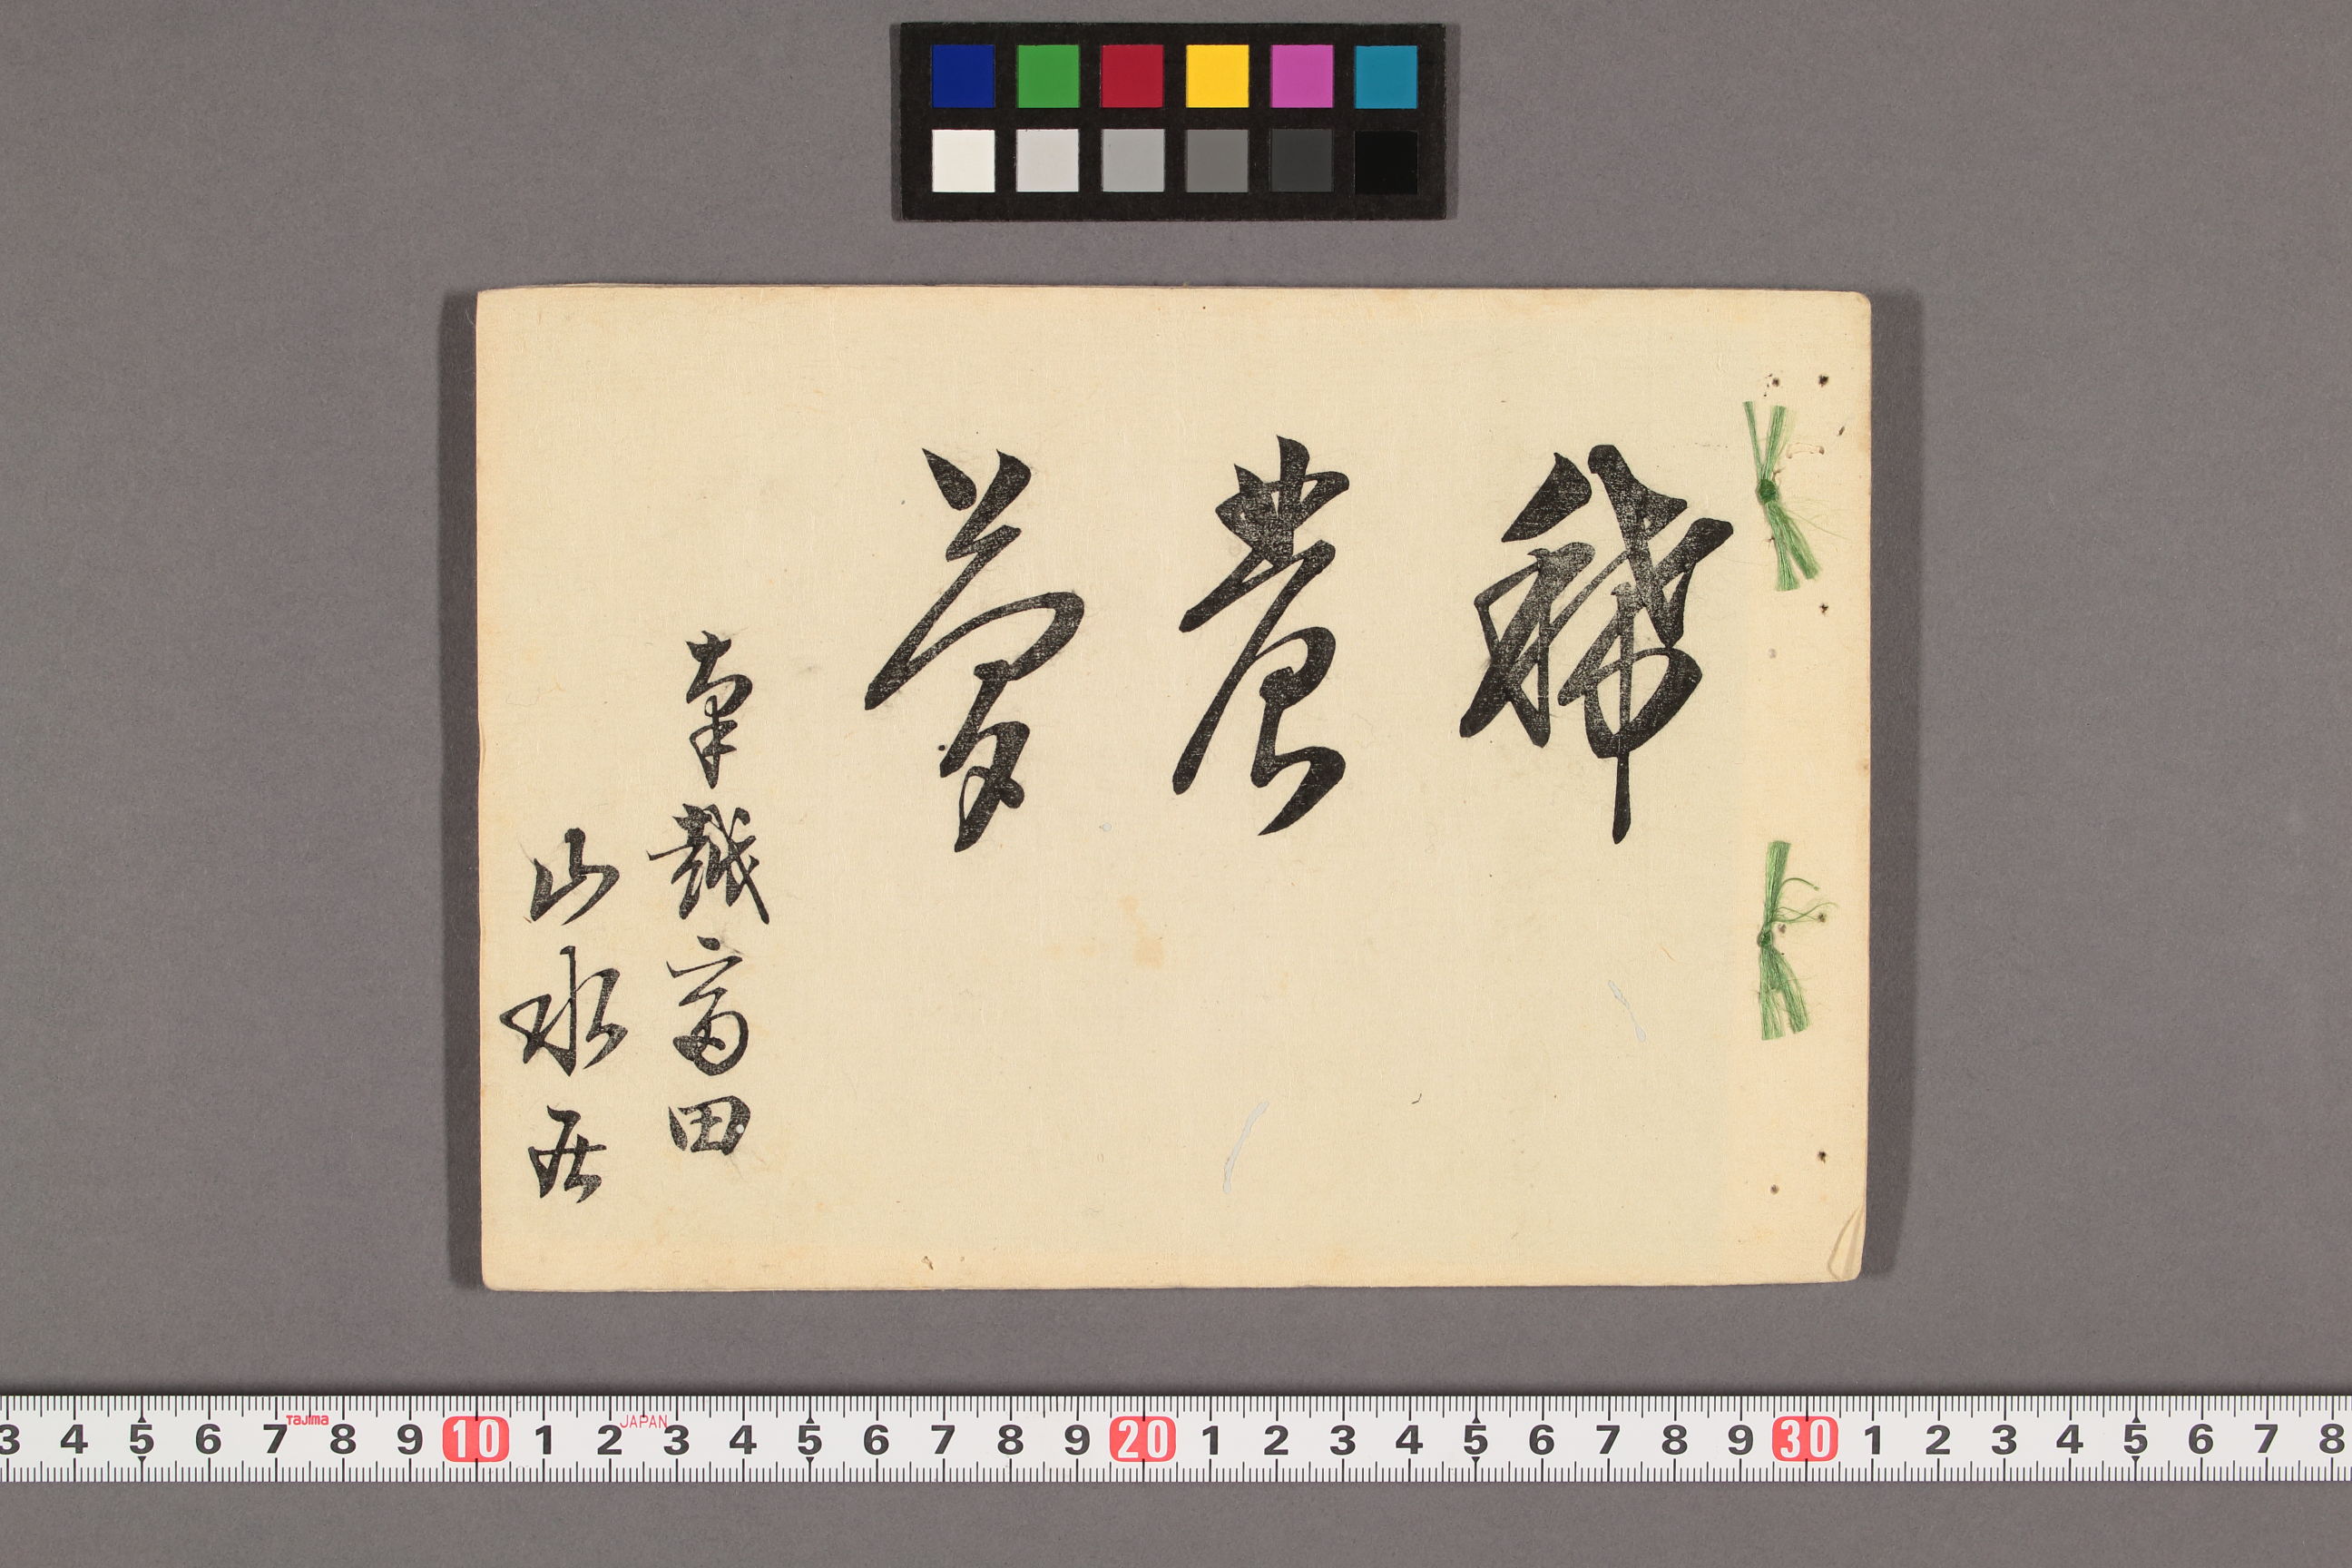 稀農夢
南越富田
山水
3 4 5 6 7 8 9 10 1 2 3 4 5 6 7 8 9 20 1 2 3 4 5 6 7 8 9 30 1 2 3 4 5 6 7 8
TAJIMA JAPAN